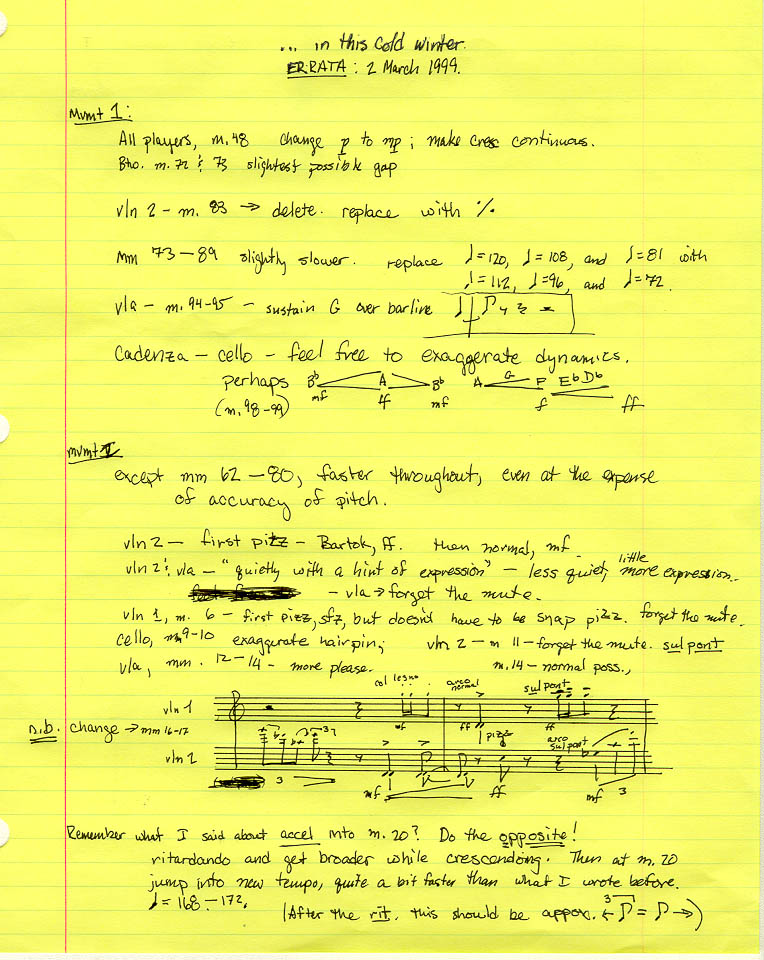 ... in this cold winter.
ERRATA : 2 March 1999.
Mvmt 1:
All players, m. 48 change p to mp ; make cresc continuous.
Btw. m. 72 & 73 slightest possible gap
vln 2 – m. 83 → delete. replace with %
mm 73–89 slightly slower. replace ♩=120, ♩=108, and ♩=81 with
♩=112, ♩=96, and ♩=72.
vla – m. 94-95 – sustain G over barline
Cadenza – cello – feel free to exaggerate dynamics.
perhaps B♭ A B♭ A G F E♭ D♭
(m. 98-99) mf ff mf f ff
mvmt II
except mm 62–80, faster throughout, even at the expense
of accuracy of pitch.
vln 2 – first pizz – Bartok, ff. then normal, mf
vln 2 & vla – "quietly with a hint of expression" – less quiet, little more expression.
– vla → forget the mute.
vln 1, m. 6 – first pizz, sfz, but doesn't have to be snap pizz. forget the mute.
cello, m 9-10 exaggerate hairpin; vln 2 – m 11 – forget the mute. sul pont
vla, mm. 12–14 – more please. m. 14 – normal poss.,
col legno arco normal sul pont
vln 1
mf ff ff
n.b. change → mm 16-17
3 pizz arco sul pont
vln 2
3 mf ff mf 3
Remember what I said about accel into m. 20? Do the opposite!
ritardando and get broader while crescendoing. Then at m. 20
jump into new tempo, quite a bit faster than what I wrote before.
♩= 168–172. (After the rit. this should be approx. ← 3 ♪ = ♪ →)